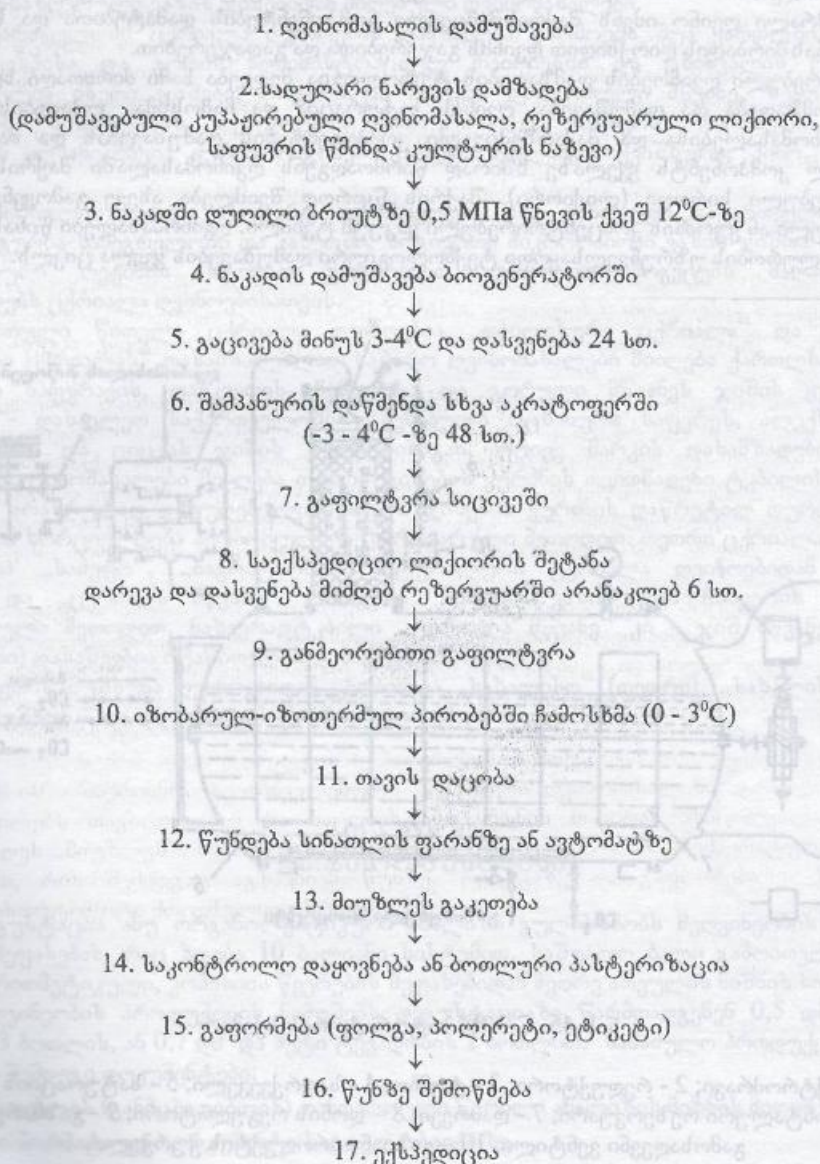 1. ღვინომასალის დამუშავება
↓
2.სადუღარი ნარევის დამზადება
(დამუშავებული კუპაჟირებული ღვინომასალა, რეზერვუარული ლიქიორი,
საფუვრის წმინდა კულტურის ნაზევი)
↓
3. ნაკადში დუღილი ბრიუტზე 0,5 МПа წნევის ქვეშ 12⁰C-ზე
↓
4. ნაკადის დამუშავება ბიოგენერატორში
↓
5. გაცივება მინუს 3-4⁰C და დასვენება 24 სთ.
↓
6. შამპანურის დაწმენდა სხვა აკრატოფერში
(-3 - 4⁰C -ზე 48 სთ.)
↓
7. გაფილტვრა სიცივეში
↓
8. საექსპედიციო ლიქიორის შეტანა
დარევა და დასვენება მიმღებ რეზერვუარში არანაკლებ 6 სთ.
↓
9. განმეორებითი გაფილტვრა
↓
10. იზობარულ-იზოთერმულ პირობებში ჩამოსხმა (0 - 3⁰C)
↓
11. თავის დაცობა
↓
12. წუნდება სინათლის ფარანზე ან ავტომატზე
↓
13. მიუზლეს გაკეთება
↓
14. საკონტროლო დაყოვნება ან ბოთლური პასტერიზაცია
↓
15. გაფორმება (ფოლგა, კოლერეტი, ეტიკეტი)
↓
16. წუნზე შემოწმება
↓
17. ექსპედიცია